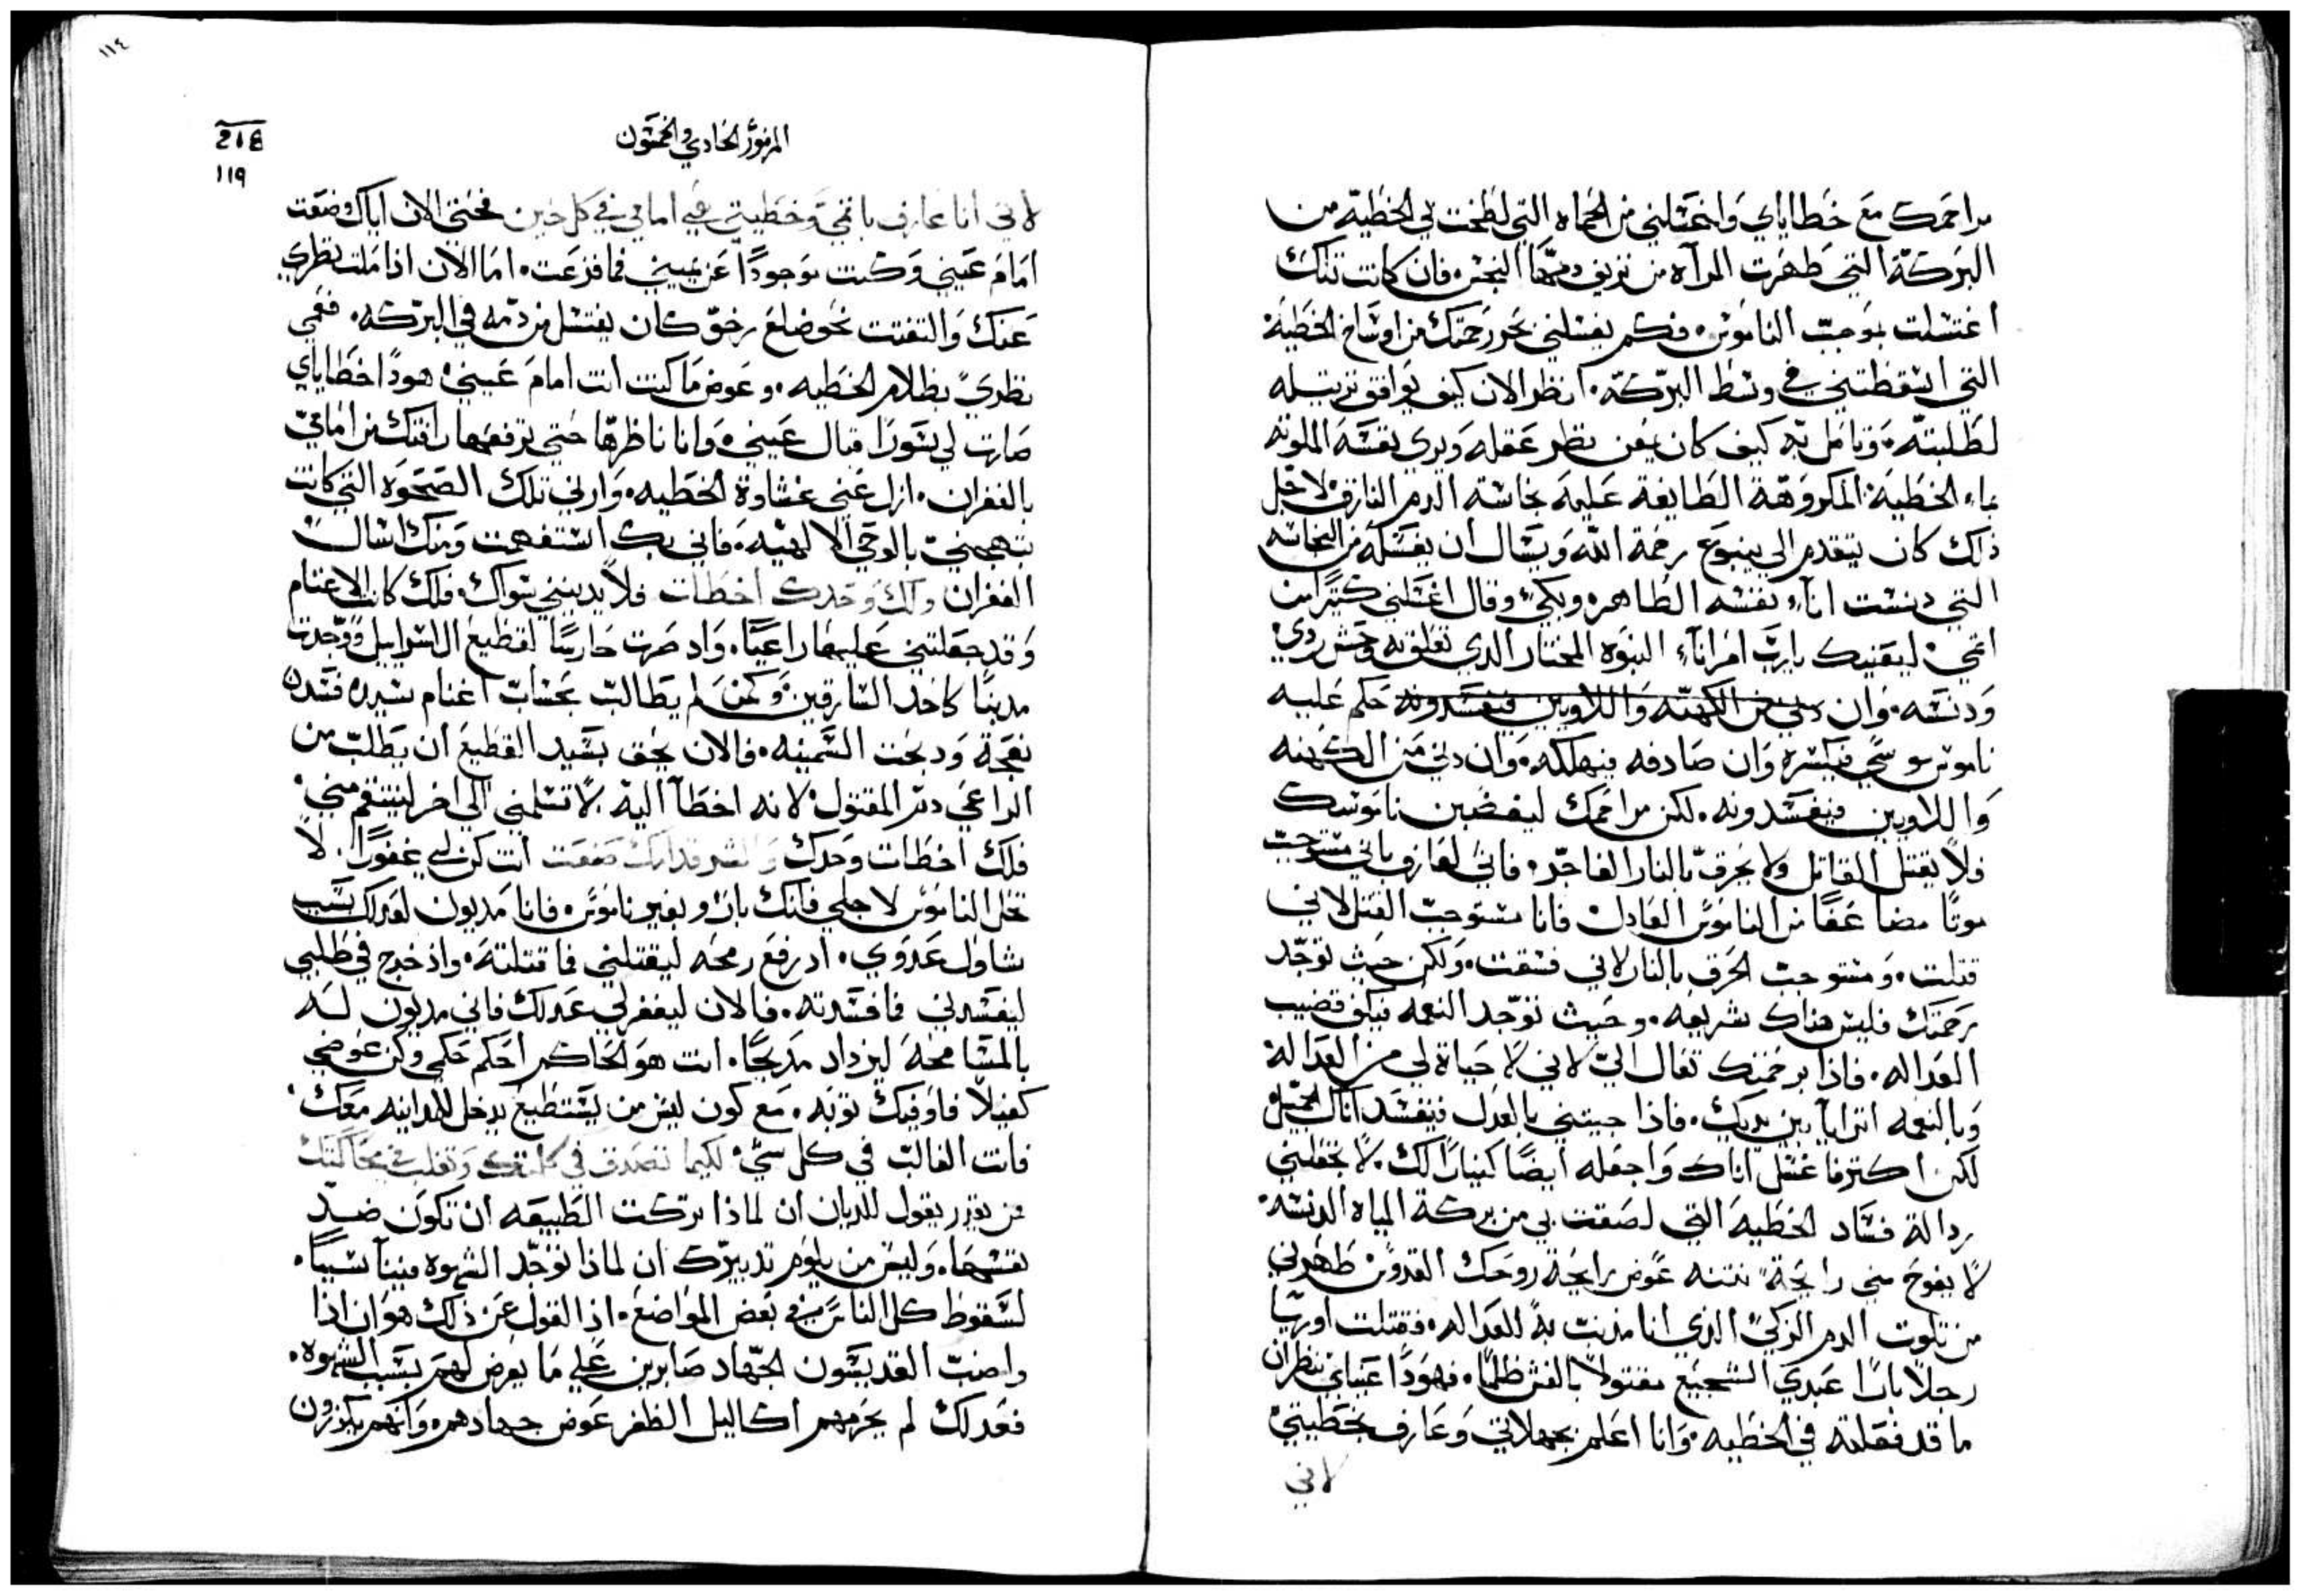 مراحمك مع خطاياي واغسلني من الحماه التي لطخت بي الخطيه من
البركة التي طهرت المرآه من نزيف دمها النجس فان كانت تلك
اغتسلت بموجب الناموس فكم يغسلني بحور رحمتك من اوساخ الخطية
التي اسقطتني في وسط البركه انظر الان كيف يوافق ترتيله
لطلبته وتامل به كيف كان يمعن نظر عقله ويري نفسه الملوثه
بماء الخطية المكروهة الطايفة عليه نجاسة الدم النازف لاجل
ذلك كان يتقدم الي ينبوع رحمة الله ويسال ان يغسله من النجاسه
التي دنست اناء نفسه الطاهره ويبكي وقال اغسلني كثيرا من
اثمي لينقيك يارب امر اناء النبوه المختار الذي تعلق به وحش ردي
ودنسه وان دني من الكهنه واللاويين فيفسدونه حكم عليه
ناموس موسي فيكسره وان صادفه فيهلكه وان دني من الكهنه
واللاويين فيفسدونه لكن مراحمك ليغضبن ناموسك
فلا يقتل القاتل ولا يحرق بالنار الفاجر فاني لعارف باني مستوجب
موتا مضاعفا من الناموس العادل فانا مستوجب القتل لاني
قتلت ومستوجب الحرق بالنار لاني فسقت ولكن حيث توجد
رحمتك فليس هناك شريعه وحيث توجد النعمه فيكف قضيب
العداله فاذا برحمتك تعال الي لاني لا حياة لي من العدالة
وبالنعمه اترايا بين يديك فاذا جيتني بالعدل فينفسد اناك الجميل
لكن اكثر ما غسل اناك واجعله ايضا كنيارا لك لا تجعلني
رذالة فساد الخطية التي لصقت بي من بركة المياه الدنسه
لا يفوح مني رايحة نتنه عوض رايحة روحك القدوس طهرني
من تلوت الدم الزكي الذي انا مذنب به للعداله فقتلت اوريا
رجلا بارا عبدي الشجيع مقتولا بالغش ظلما فهوذا عيناي تنظران
ما قد فعلته في الخطيه وانا اعلم بجهلاتي وعارف بخطيتي
لاني
١١٤
218
١١٩
المزمور الحادي والخمسون
لاني انا عارف باثمي وخطيتي هي امامي في كل حين فحتي الان اياك وضعت
امام عيني وكنت موجودا عن يميني فما فزعت اما الان اذا ملت نظري
عنك والتفتت نحو ضلع رخو كان يغتسل من دمه في البركه فعمي
نظري بظلام الخطيه وعوض ما كنت انت امام عيني هوذا خطاياي
صارت لي سورا قبال عيني وانا ناظرها حتي ترفعها رافتك من امامي
بالغفران ازل عني غشاوة الخطيه وارني تلك الصحوه التي كانت
تبهجني بالوحي الالهيه فاني بك استفهمت ومنك اسال
الغفران ولك وحدك اخطات فلا يدينني سواك فلك كانت الاغنام
وقد جعلتني عليها راعيا واذ صرت حارسا لقطيع ال اسراييل ووجدت
مدينا كاحد السارقين وكمن لم يطالب بحساب اغنام سيده فسدت
نعجة ودبحت السمينه فالان يحق بسيد القطيع ان يطلب من
الراعي دم المقتول لانه اخطا اليه لا تسلمني الي اخر لينتقم مني
فلك اخطات وحدك والشر قدامك صنعت انت كن لي غفورا لا
تحل الناموس لاجلي فانك بار وبغير ناموس فانا مديون لعدلك بسبب
شاول عدوي اذ رفع رمحه ليقتلني فما قتلته واذ خرج في طلبي
ليفسدني فافسدته فالان ليغفر لي عدلك فاني مديون له
بالمسامحه ليزداد مديحا انت هو الحاكم احكم حكمي وكن عوضي
كفيلا فاوفيك توبه مع كون ليس من يستطيع يدخل للمداينه معك
فانت الغالب في كل شي لكيما تصدق في كلمتك وتغلب في محاكمتك
من يقدر يقول للديان ان لماذا تركت الطبيعه ان تكون ضد
نفسها وليس من يلوم تدبيرك ان لماذا توجد الشهوة فينا سببا
لسقوط كل الناس في بعض المواضع اذ القول عن ذلك هو ان اذا
واضب القديسون الجهاد صابرين علي ما يعرض لهم بسبب الشهوة
فعدلك لم يحرمهم اكاليل الظفر عوض جهادهم وانهم